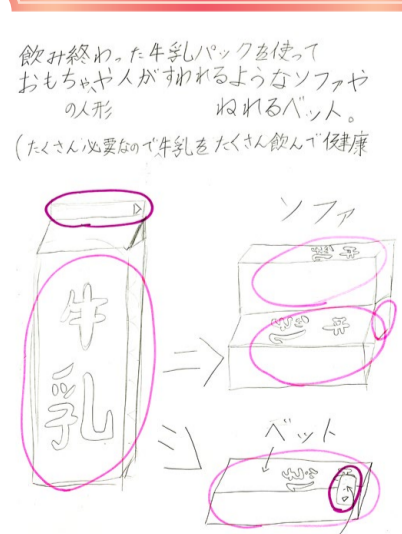 飲み終わった牛乳パックを使って
おもちゃや人がすわれるようなソファや
の人形 ねれるベット。
(たくさん必要なので牛乳をたくさん飲んで健康
ソファ
牛乳
牛乳
牛乳
ベット
乳